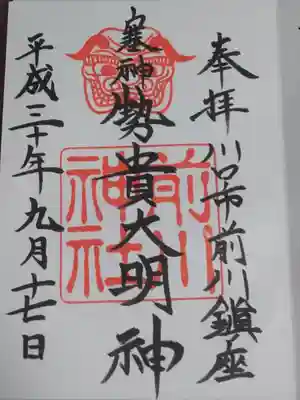 奉拝 川口市前川鎮座
塞神 勢貴大明神
前川
神社
平成三十年九月十七日